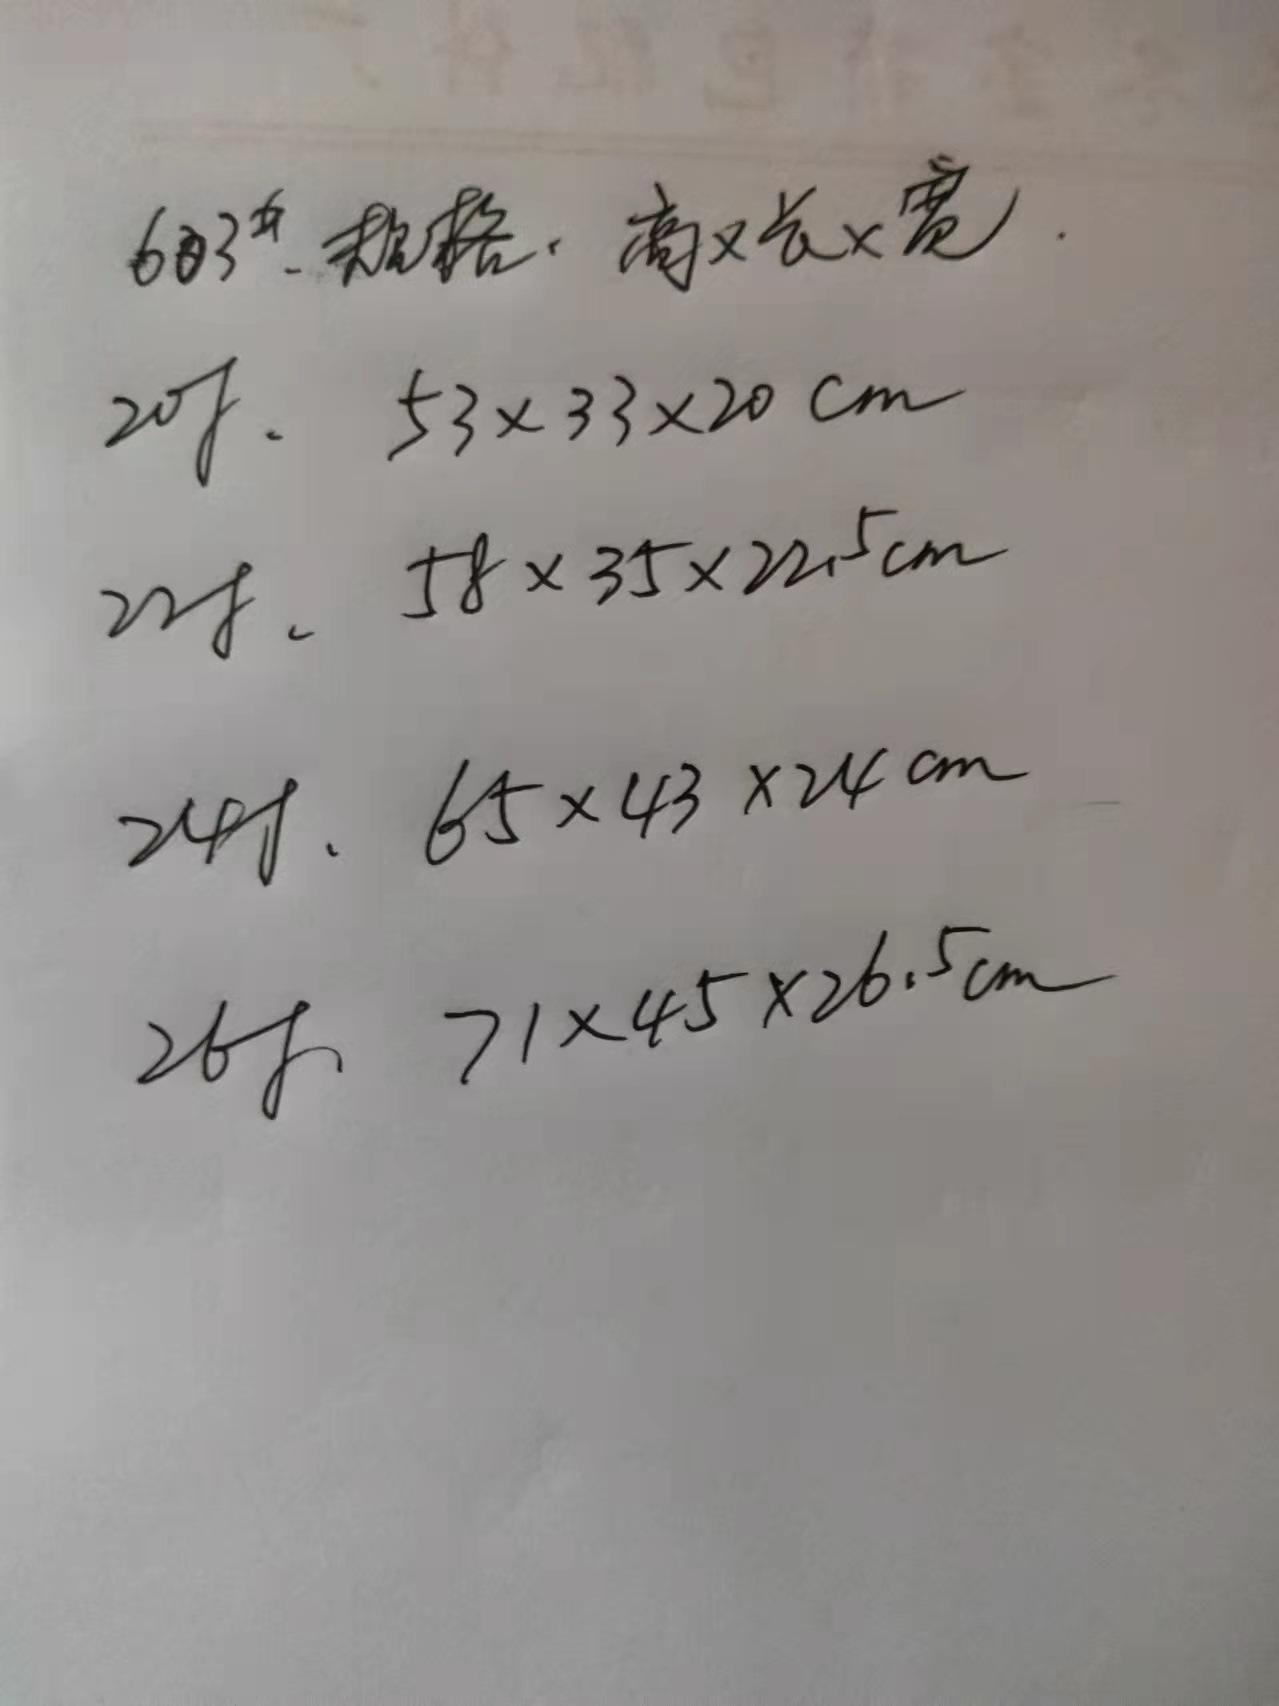 603#、规格. 高×长×宽.
20寸、 53×33×20 cm
22寸、 58×35×22.5cm
24寸、 65×43×24cm
26寸、 71×45×26.5cm